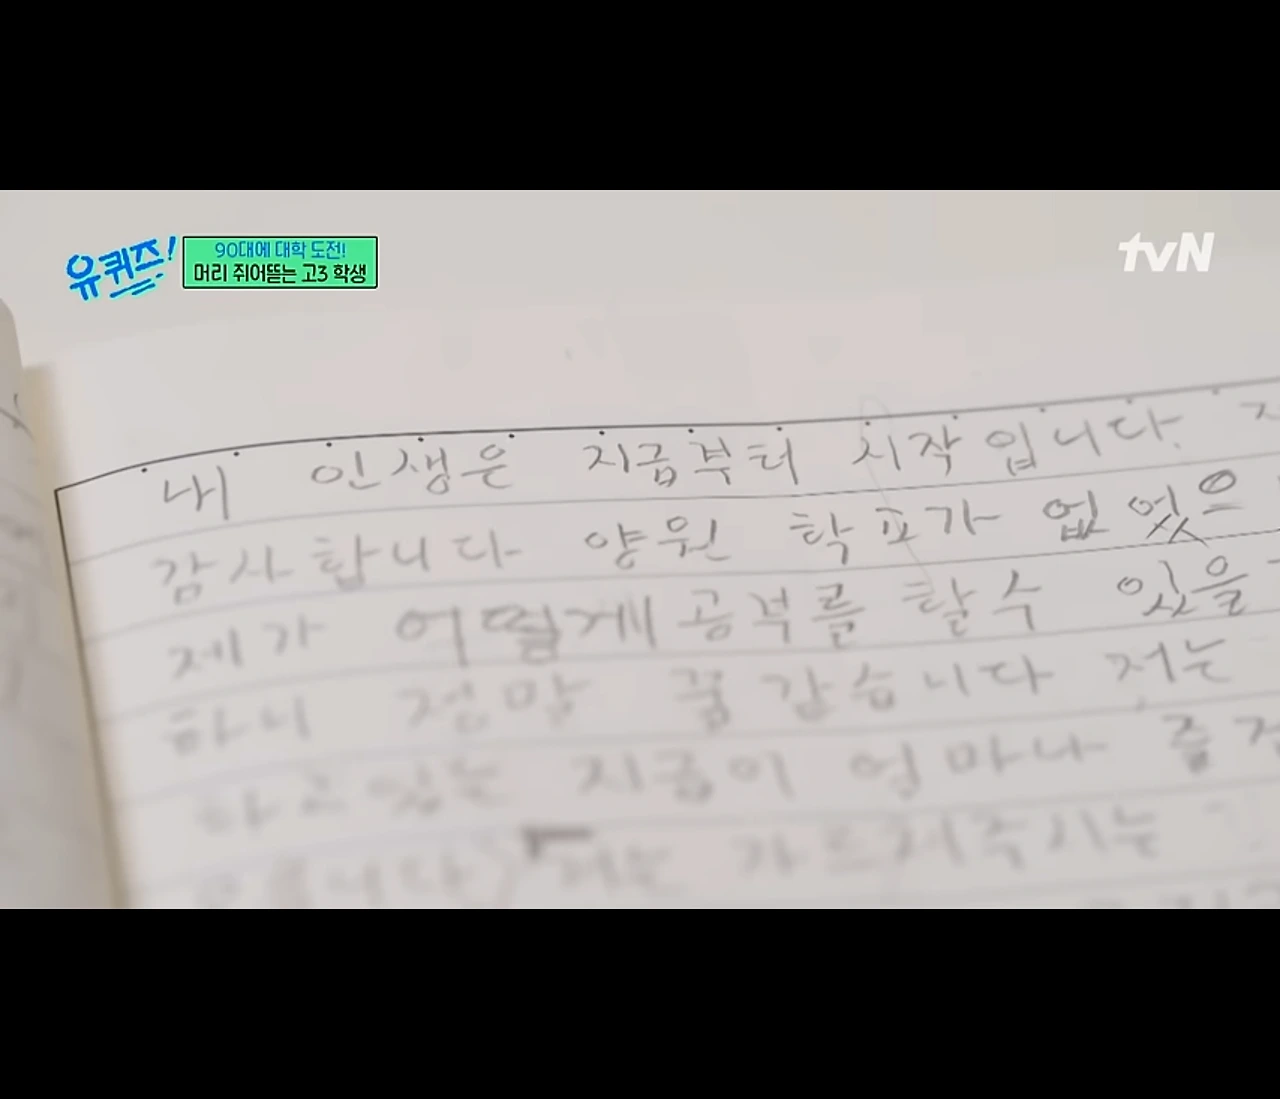 유퀴즈!
90대에 대학 도전!
머리 쥐어뜯는 고3 학생
tvN
내 인생은 지금부터 시작입니다.
감사합니다 양원 학교가 없었으
제가 어떻게 공부를 할수 있을
하니 정말 꿈 같습니다 저는
하고 있는 지금이 얼마나 즐
저는 가르쳐주시는